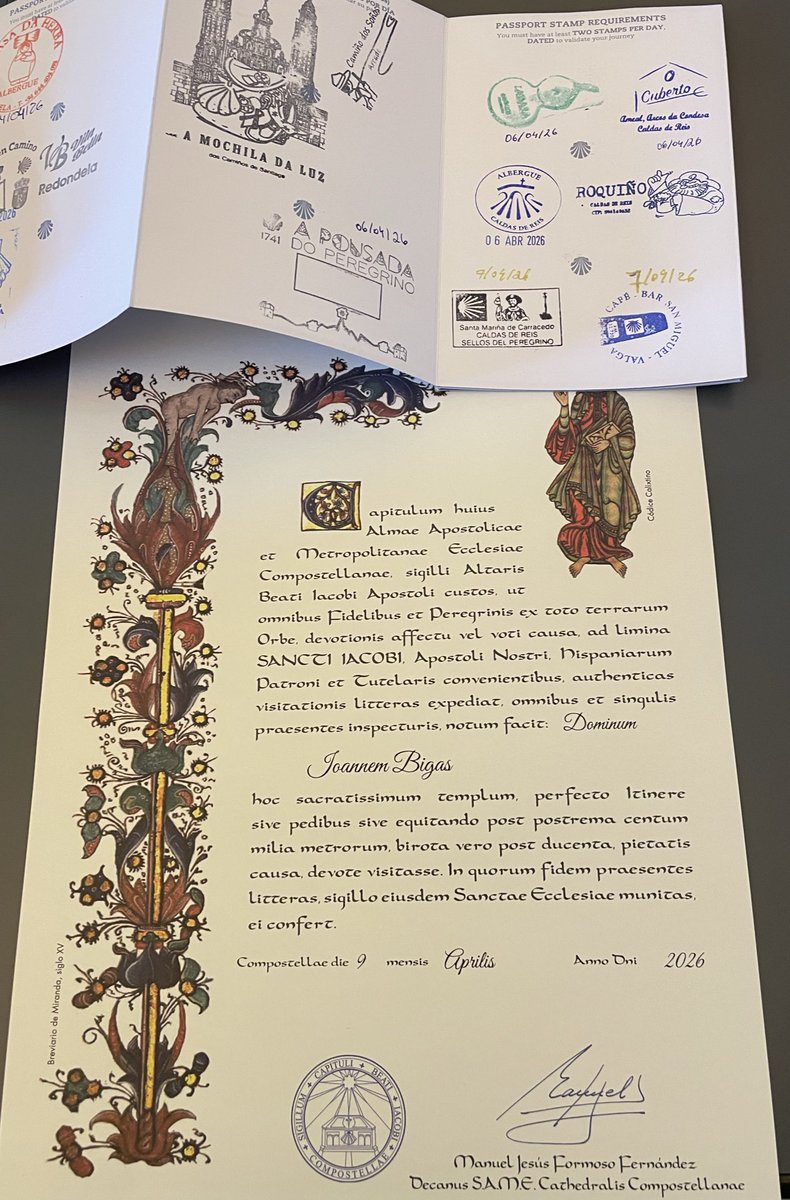 PASSPOR
You must have at lea
DATED to
ALBERGUE
04/04/26
Redondela
2026
Camiño dos Sone
Arcade
A MOCHILA DA LUZ
dos Camiños de Santiago
06/04/26
1741
A POUSADA
DO PEREGRINO
PASSPORT STAMP REQUIREMENTS
You must have at least TWO STAMPS PER DAY,
DATED to validate your journey
06/04/26
Cuberto
Ameal, Arcos da Condesa
Caldas de Reis
06/04/26
ALBERGUE
CALDAS DE REIS
06 ABR 2026
ROQUIÑO
CALDAS DE REIS
7/04/26
Santa Mariña de Carracedo
CALDAS DE REIS
SELLOS DEL PEREGRINO
CAFÉ - BAR SAN MIGUEL - VALGA
Códice Calixtino
Capitulum huius
Almae Apostolicae
et Metropolitanae Ecclesiae
Compostellanae, sigilli Altaris
Beati Iacobi Apostoli custos, ut
omnibus Fidelibus et Peregrinis ex toto terrarum
Orbe, devotionis affectu vel voti causa, ad limina
SANCTI IACOBI, Apostoli Nostri, Hispaniarum
Patroni et Tutelaris convenientibus, authenticas
visitationis litteras expediat, omnibus et singulis
praesentes inspecturis, notum facit: Dominum
Ioannem Bigas
hoc sacratissimum templum, perfecto Itinere
sive pedibus sive equitando post postrema centum
milia metrorum, birota vero post ducenta, pietatis
causa, devote visitasse. In quorum fidem praesentes
litteras, sigillo eiusdem Sanctae Ecclesiae munitas,
ei confert.
Compostellae die 9 mensis Aprilis Anno Dni 2026
Breviario de Miranda, siglo XV
SIGILLUM CAPITULI BEATI IACOBI COMPOSTELLAE
Manuel Jesús Formoso Fernández
Decanus S.A.M.E. Cathedralis Compostellanae